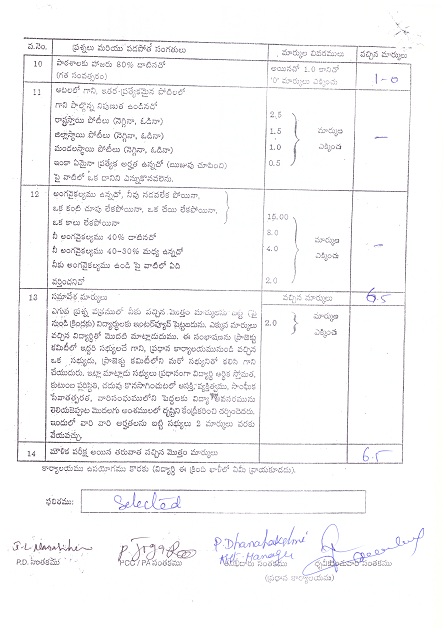 వ.నెం. ప్రశ్నలు మరియు పడపోత సంగతులు మార్కుల వివరములు వచ్చిన మార్కులు
10 పాఠశాలకు హాజరు 80% దాటినదో అయినదో 1.0 కానిదో 1-0
(గత సంవత్సరం) '0' మార్కులు ఎక్కించు
11 ఆటలలో గాని, ఇతర ప్రత్యేకమైన పోటీలలో
గాని పాల్గొన్న నిపుణుత ఉండినదో
రాష్ట్రస్థాయి పోటీలు (నెగ్గినా, ఓడినా) 2.5
జిల్లాస్థాయి పోటీలు (నెగ్గినా, ఓడినా) 1.5 మార్కుణ —
మండలస్థాయి పోటీలు (నెగ్గినా, ఓడినా) 1.0 ఎక్కించ
ఇంకా ఏమైనా ప్రత్యేక అర్హత ఉన్నదో (ఋజువు చూపించి) 0.5
పై వాటిలో ఒక దానిని ఎన్నుకొనవలెను.
12 అంగవైకల్యము ఉన్నదో, నీవు నడవలేక పోయినా,
ఒక కంటి చూపు లేకపోయినా, ఒక చేయి లేకపోయినా,
ఒక కాలు లేకపోయినా 15.00
నీ అంగవైకల్యము 40% దాటినదో 8.0 మార్కుణ
నీ అంగవైకల్యము 40-30% మధ్య ఉన్నదో 4.0 ఎక్కించ —
నీకు అంగవైకల్యము ఉండి పై వాటిలో ఏది
వర్తించనిదో 2.0
13 సమావేశ మార్కులు వచ్చిన మార్కులు 6.5
ఎగువ ప్రశ్న పత్రములో నీకు వచ్చిన మొత్తం మార్కులను బట్టి (పై
నుండి క్రిందకు) విద్యార్థులకు ఇంటర్వ్యూక్ పెట్టబడును. ఎక్కువ మార్కులు 2.0 మార్కుణ
వచ్చిన విద్యార్థితో మొదటి మాట్లాడుదుము. ఈ సంభాషణను ప్రాజెక్టు ఎక్కించ
కమిటీలో ఇద్దరి సభ్యులచే గాని, ప్రధాన కార్యాలయమునుండి వచ్చిన
ఒక సభ్యుడు, ప్రాజెక్టు కమిటీలోని మరో సభ్యునితో కలిసి గాని
చేయుదురు. ఇట్లా మాట్లాడు సభ్యులు ప్రధానంగా విద్యార్థి ఆర్థిక స్తోమత,
కుటుంబ పరిస్థితి, చదువు కొనసాగించుటలో ఆసక్తి, వ్యక్తిత్వము, సాంఘిక
సేవాతత్పరత, వారిసంఘములోని పెద్దలకు విద్యా అవసరమును
తెలియజెప్పుట మొదలగు అంశములలో దృష్టిని కేంద్రీకరించి చర్చించెదరు.
ఇందులో వారి వారి అర్హతలను బట్టి సభ్యులు 2 మార్కులు వరకు
వేయవచ్చు.
14 మౌఖిక పరీక్ష అయిన తరువాత వచ్చిన మొత్తం మార్కులు 6.5
కార్యాలయము ఉపయోగము కొరకు (విద్యార్థి ఈ క్రింది ఖాళీలో ఏమీ వ్రాయకూడదు).
ఫలితము: Selected
P. Dhanalakshmi
P.D. సంతకము PCO / PA సంతకము సంతకము
(ప్రధాన కార్యాలయము)